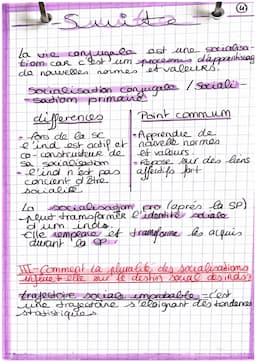 Suite
4
la vie conjugale est une socialisa-
tion car c'est un processus d'apprentissage
de nouvelles normes et valeurs.
socialisation conjugale / sociali-
sation primaire
differences
Point commun
- lors de la SC
l'ind est actif et
co-constructeur de
sa socialisation
- l'ind n'est pas
concient d'être
socialisé
- Apprendre de
nouvelle normes
et valeurs
- repose sur des liens
affectifs fort
La socialisation pro (après la SP)
- peut transformer l'identité sociale
d'un indiv.
- elle remplace et transforme les acquis
durant la SP
III - Comment la pluralité des socialisations
influe-t-elle sur le destin social des indiv?
trajectoire sociale improbable - c'est
une trajectoire s'éloignant des tendances
statistiques